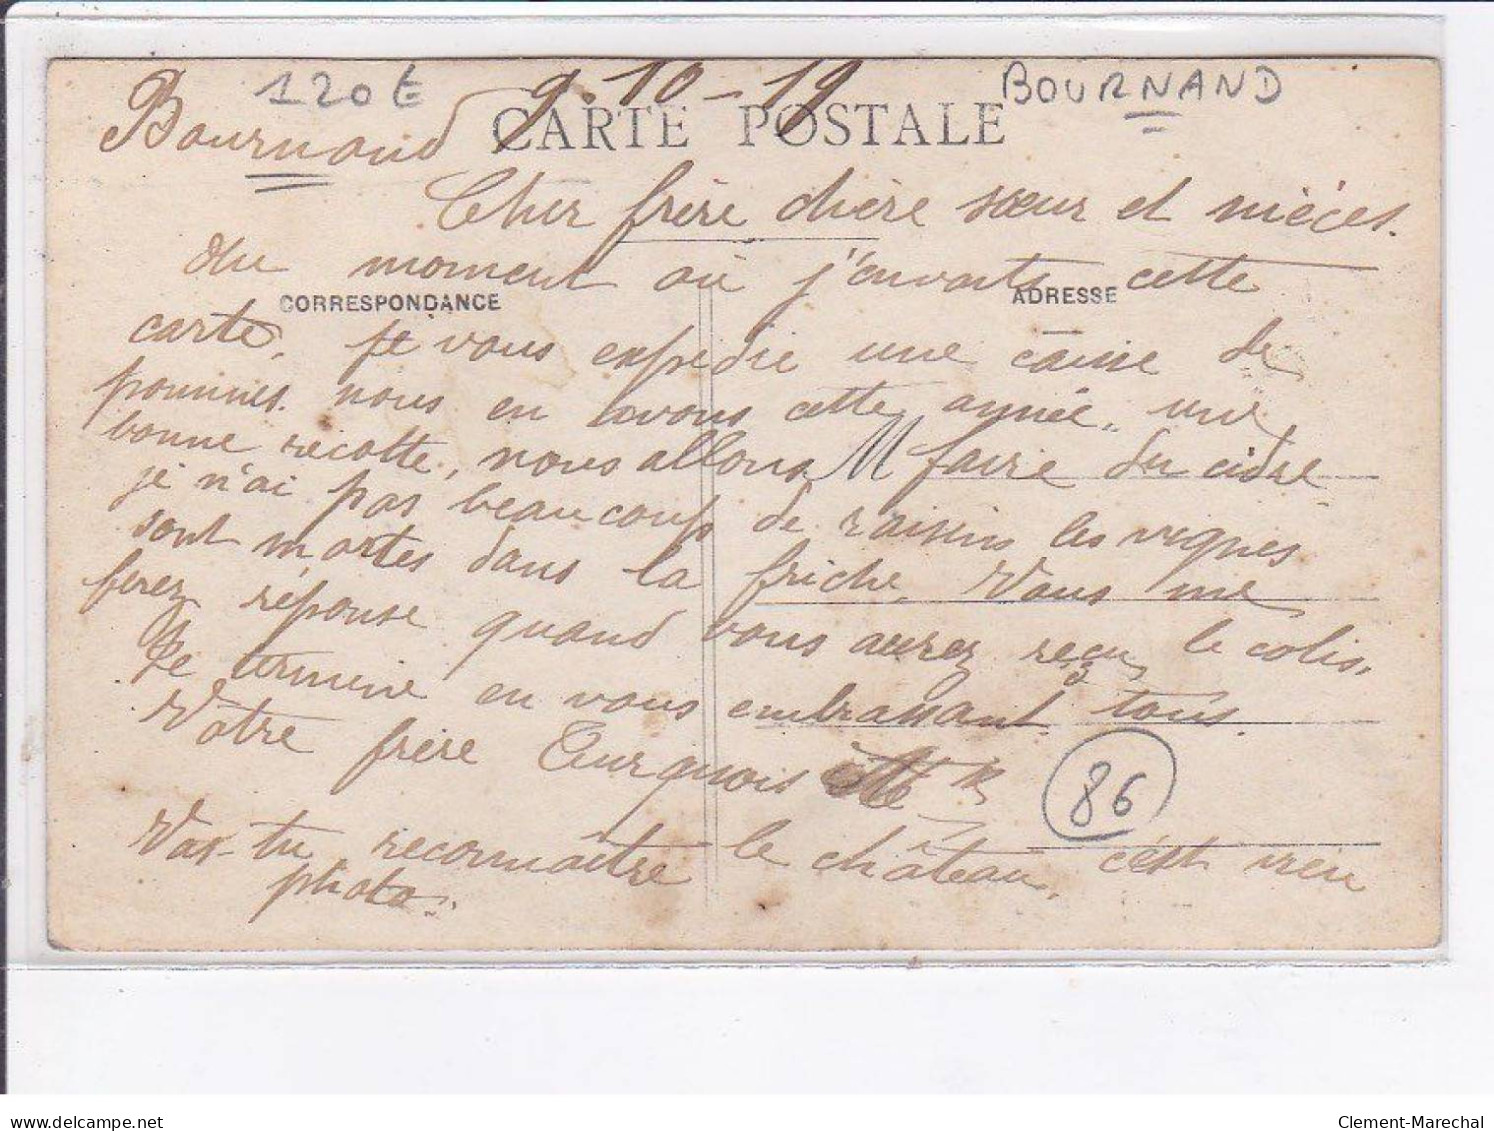 120€
BOURNAND
Bournand 9-10-19
CARTE POSTALE
Cher frère chère sœur et nièces.
Au moment où j'envoie cette
CORRESPONDANCE
ADRESSE
carte, je vous expédie une caisse de
pommes. nous en avons cette année, une
bonne récolte, nous allons faire du cidre
je n'ai pas beaucoup de raisins les vignes
sont mortes dans la friche. Vous me
ferez réponse quand vous aurez reçu le colis.
Je termine en vous embrassant tous.
Vôtre frère Turquois
86
Vas-tu reconnaître le château, c'est vieu
photo.
delcampe.net
Clement-Marechal